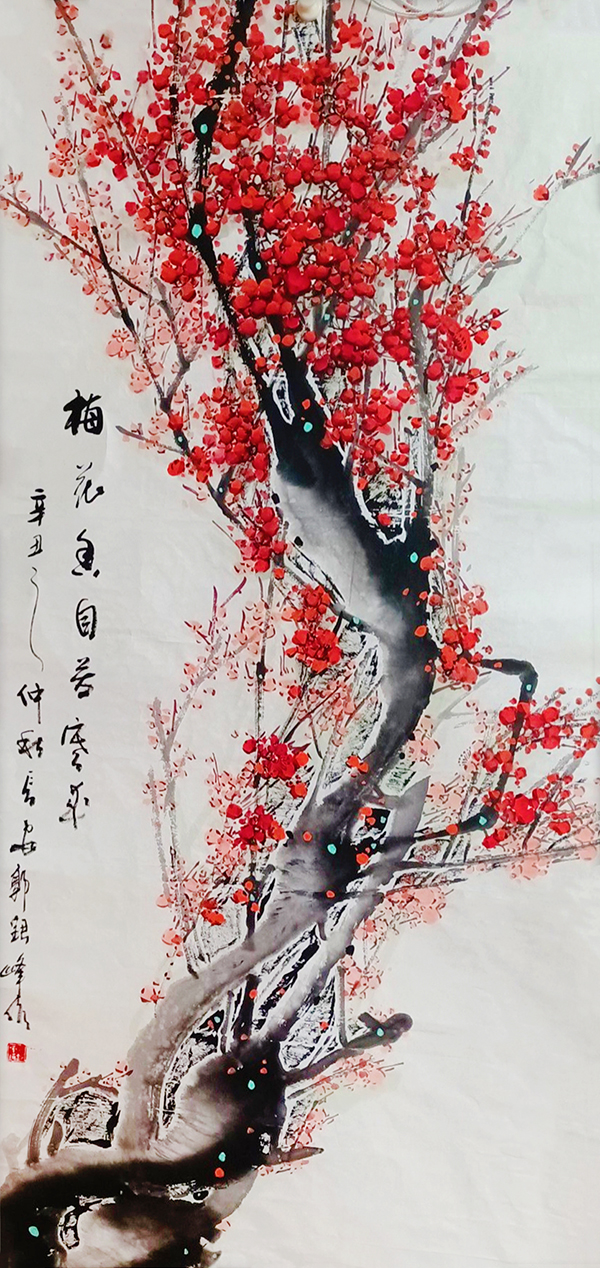 梅花香自苦寒来
辛丑之仲秋长安郭银峰作